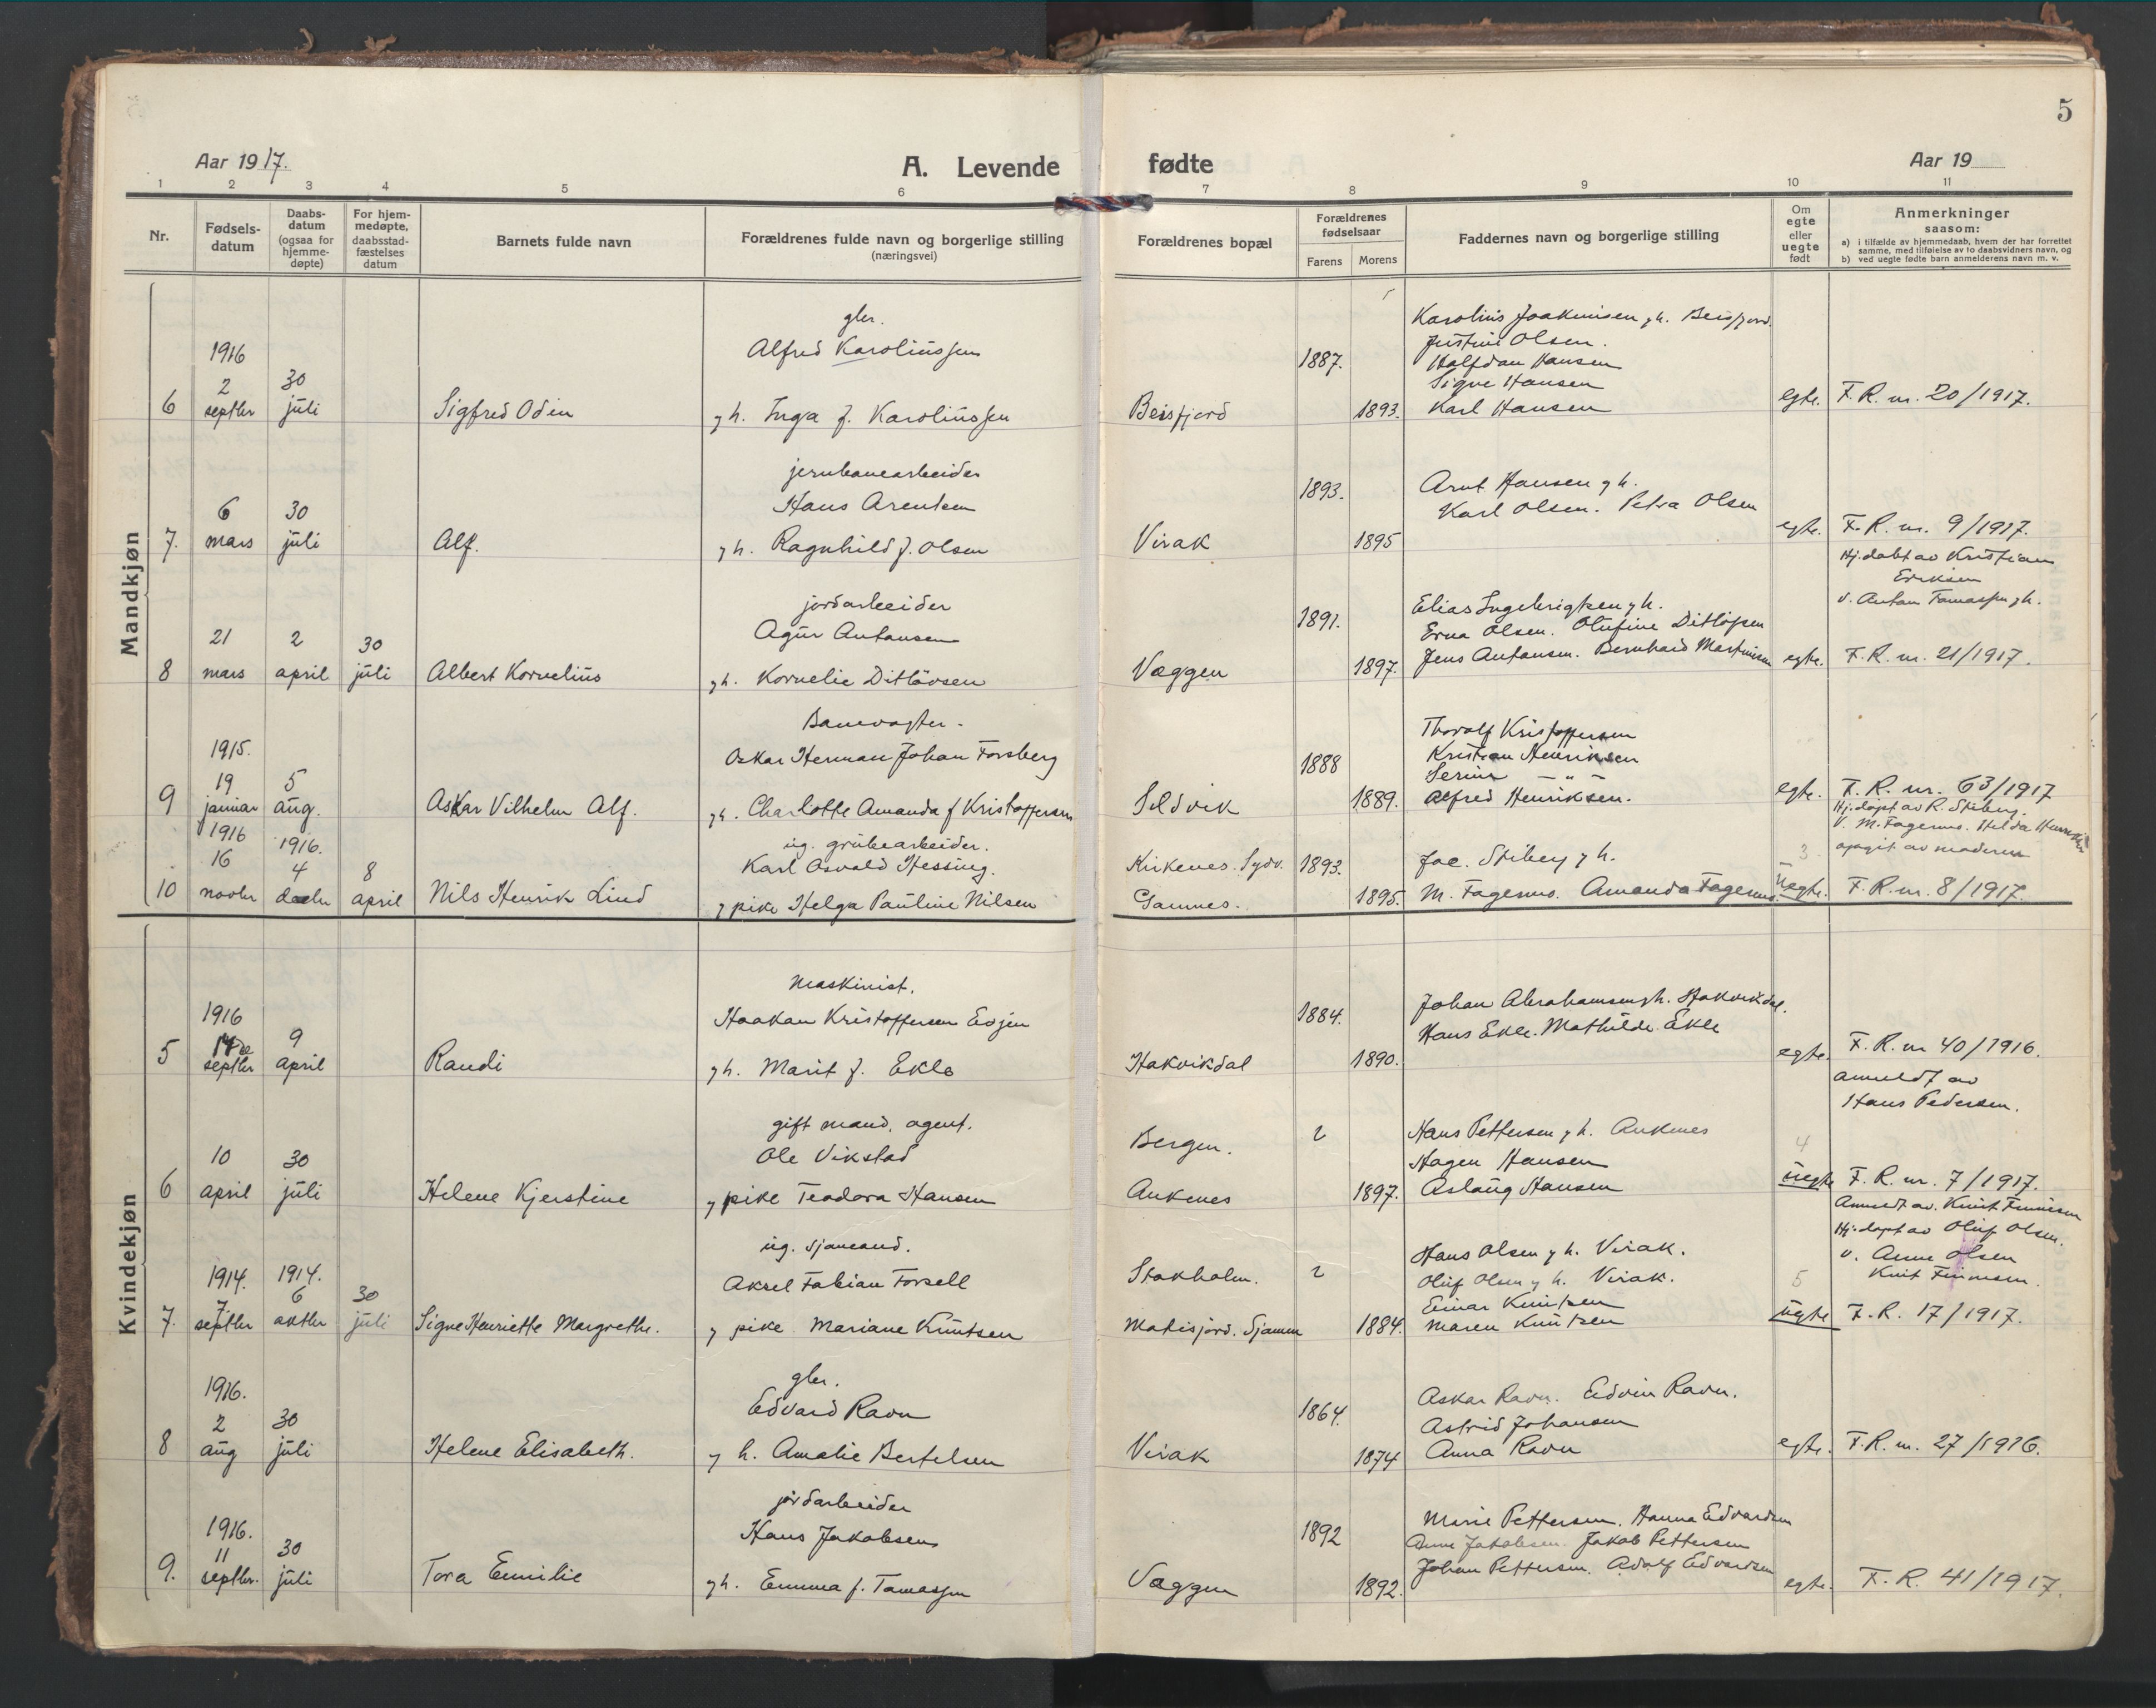 5
Aar 1917.
A. Levende fødte
Aar 19
1 2 3 4 5 6 7 8 9 10 11
Nr.
Fødsels-
datum
Daabs-
datum
(ogsaa for
hjemme-
døpte)
For hjem-
medøpte,
daabsstad-
fæstelses
datum
Barnets fulde navn
Forældrenes fulde navn og borgerlige stilling
(næringsvei)
Forældrenes bopæl
Forældrenes
fødselsaar
Farens Morens
Faddernes navn og borgerlige stilling
Om
egte
eller
uegte
født
Anmerkninger
saasom:
a) i tilfælde av hjemmedaab, hvem der har forrettet
samme, med tilføielse av to daabsvidners navn, og
b) ved uegte fødte barn anmelderens navn m. v.
Mandkjøn
gbr.
1916 Alfred Karoliussen
2 30
6 septbr juli Sigfred Odin
g h. Inga f. Karoliussen
Beisfjord 1887. 1893.
Karolius Joakimsen g h. Beisfjord.
Justine Olsen.
Halfdan Hansen
Signe Hansen
Karl Hansen
egte. F. R. nr. 20/1917.
jernbanearbeider
6 30 Hans Arentsen
7. mars juli Alf.
g h. Ragnhild f. Olsen
Virak 1893. 1895
Arnt Hansen g h.
Karl Olsen. Petra Olsen
egte. F. R. nr. 9/1917.
Hj. døbt av Kristian
Eriksen
v. Antan Tomassen g h.
jordarbeider
21 2 30 Agur Antonsen
8 mars april juli Albert Kornelius
g h. Kornelie Ditløvsen
Væggen 1891. 1897.
Elias Ingebrigtsen g h.
Erna Olsen. Olufine Ditløfsen
Jens Antonsen. Bernhard Martinsen
egte. F. R. nr. 21/1917.
Banevogter.
1915. Oskar Herman Johan Forsberg
19 5
9 januar aug. Askar Vilhelm Alf.
g h. Charlotte Amanda f Kristoffersen
Sildvik 1888 1889.
Thoralf Kristoffersen
Kristian Henriksen
Serine — " —
Alfred Henriksen.
egte. F. R. nr. 63/1917
Hj. døpt av R. Stiberg.
V. M. Fagernes. Helda Henriksen
opgit av moderen
1916 1916. ug. grubearbeider.
16 4 8 Karl Osvald Hessing.
10 novbr decbr april Nils Henrik Lind
g pike Helga Pauline Nilsen
Kirkenes. Sydv. 1893.
Gamnes. 1895.
Jac. Stiberg g h.
M. Fagernes. Amanda Fagernes.
3
Uegte. F. R. nr. 8/1917.
Kvindekjøn
maskinist.
1916 Haakan Kristoffersen Evjen
14de 9
5 septbr april Randi
g h. Marit f. Ekle
Hakvikdal 1884. 1890.
Johan Abrahamsen g h. Hakvikdal.
Hans Ekle. Mathilde Ekle
egte. F. R. nr 40/1916.
anmeldt av
Hans Pedersen.
gift mand, agent.
10 30 Ole Vikstad
6 april juli Helene Kjerstine
g pike Teodora Hansen
Bergen. 2
Ankenes 1897.
Hans Pettersen g h. Ankenes
Hagen Hansen
Aslaug Hansen
4
uegte F. R. nr. 7/1917.
Anmeldt av. Knut Finnesen
Hj. døpt av Oluf Olsen.
v. Anne Olsen
Knut Finnesen.
ug. sjømand.
1914. 1914. Aksel Fabian Forsell
7. 6 30
7. septbr oktbr juli Signe Henriette Margrethe.
g pike Mariane Knutsen
Stokholm. 2
1884.
Hans Olsen g h. Virak.
Oluf Olsen g h. Virak.
Einar Knutsen
Maren Knutsen
5
uegte F. R. 17/1917.
gbr.
1916. Edvard Ravn
2 30
8 aug juli Helene Elisabeth.
g h. Amalie Bertelsen
Virak 1864. 1874
Askar Ravn. Edvin Ravn.
Astrid Johansen
Anna Ravn
egte. F. R. nr. 27/1916.
jordarbeider
1916. Hans Jakobsen
11 30
9. septbr. juli Tora Emilie
g h. Emma f. Tomassen
Væggen 1892 1892.
Marie Pettersen. Hanna Edvardsen
Anne Jakobsen. Jakob Pettersen
Johan Pettersen. Adolf Edvardsen
egte. F. R. 41/1917.